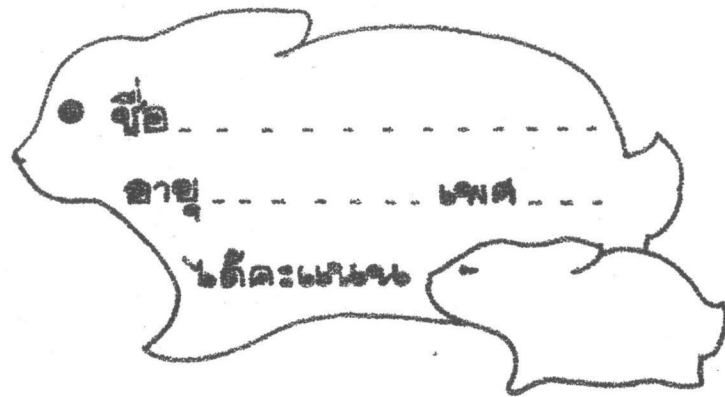 ชื่อ
อายุ เพศ
ได้คะแนน